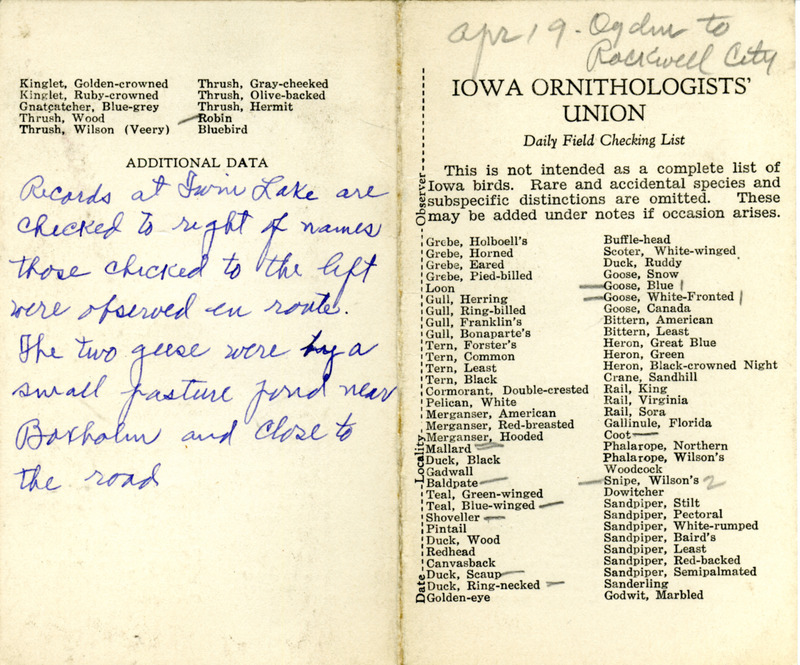 Kinglet, Golden-crowned
Kinglet, Ruby-crowned
Gnatcatcher, Blue-grey
Thrush, Wood
Thrush, Wilson (Veery)
Thrush, Gray-cheeked
Thrush, Olive-backed
Thrush, Hermit
Robin
Bluebird
ADDITIONAL DATA
Records at Twin Lake are
checked to right of names
those checked to the left
were observed en route.
The two geese were by a
small pasture pond near
Boxholm and close to
the road
Apr 19 - Ogden to
Rockwell City
IOWA ORNITHOLOGISTS'
UNION
Daily Field Checking List
This is not intended as a complete list of
Iowa birds. Rare and accidental species and
subspecific distinctions are omitted. These
may be added under notes if occasion arises.
Date Locality Observer
Grebe, Holboell's
Grebe, Horned
Grebe, Eared
Grebe, Pied-billed
Loon
Gull, Herring
Gull, Ring-billed
Gull, Franklin's
Gull, Bonaparte's
Tern, Forster's
Tern, Common
Tern, Least
Tern, Black
Cormorant, Double-crested
Pelican, White
Merganser, American
Merganser, Red-breasted
Merganser, Hooded
Mallard
Duck, Black
Gadwall
Baldpate
Teal, Green-winged
Teal, Blue-winged
Shoveller
Pintail
Duck, Wood
Redhead
Canvasback
Duck, Scaup
Duck, Ring-necked
Golden-eye
Buffle-head
Scoter, White-winged
Duck, Ruddy
Goose, Snow
Goose, Blue 1
Goose, White-Fronted 1
Goose, Canada
Bittern, American
Bittern, Least
Heron, Great Blue
Heron, Green
Heron, Black-crowned Night
Crane, Sandhill
Rail, King
Rail, Virginia
Rail, Sora
Gallinule, Florida
Coot
Phalarope, Northern
Phalarope, Wilson's
Woodcock
Snipe, Wilson's 2
Dowitcher
Sandpiper, Stilt
Sandpiper, Pectoral
Sandpiper, White-rumped
Sandpiper, Baird's
Sandpiper, Least
Sandpiper, Red-backed
Sandpiper, Semipalmated
Sanderling
Godwit, Marbled